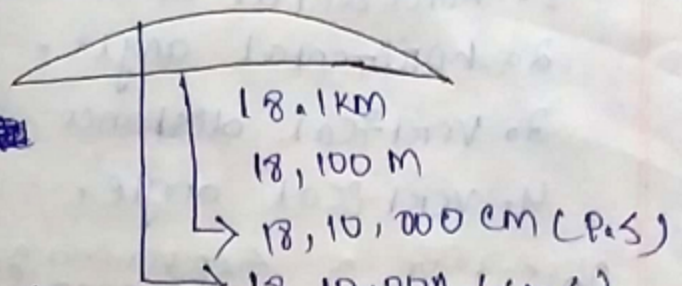 18.1KM
18,100 M
18,10,000 CM (P.S)